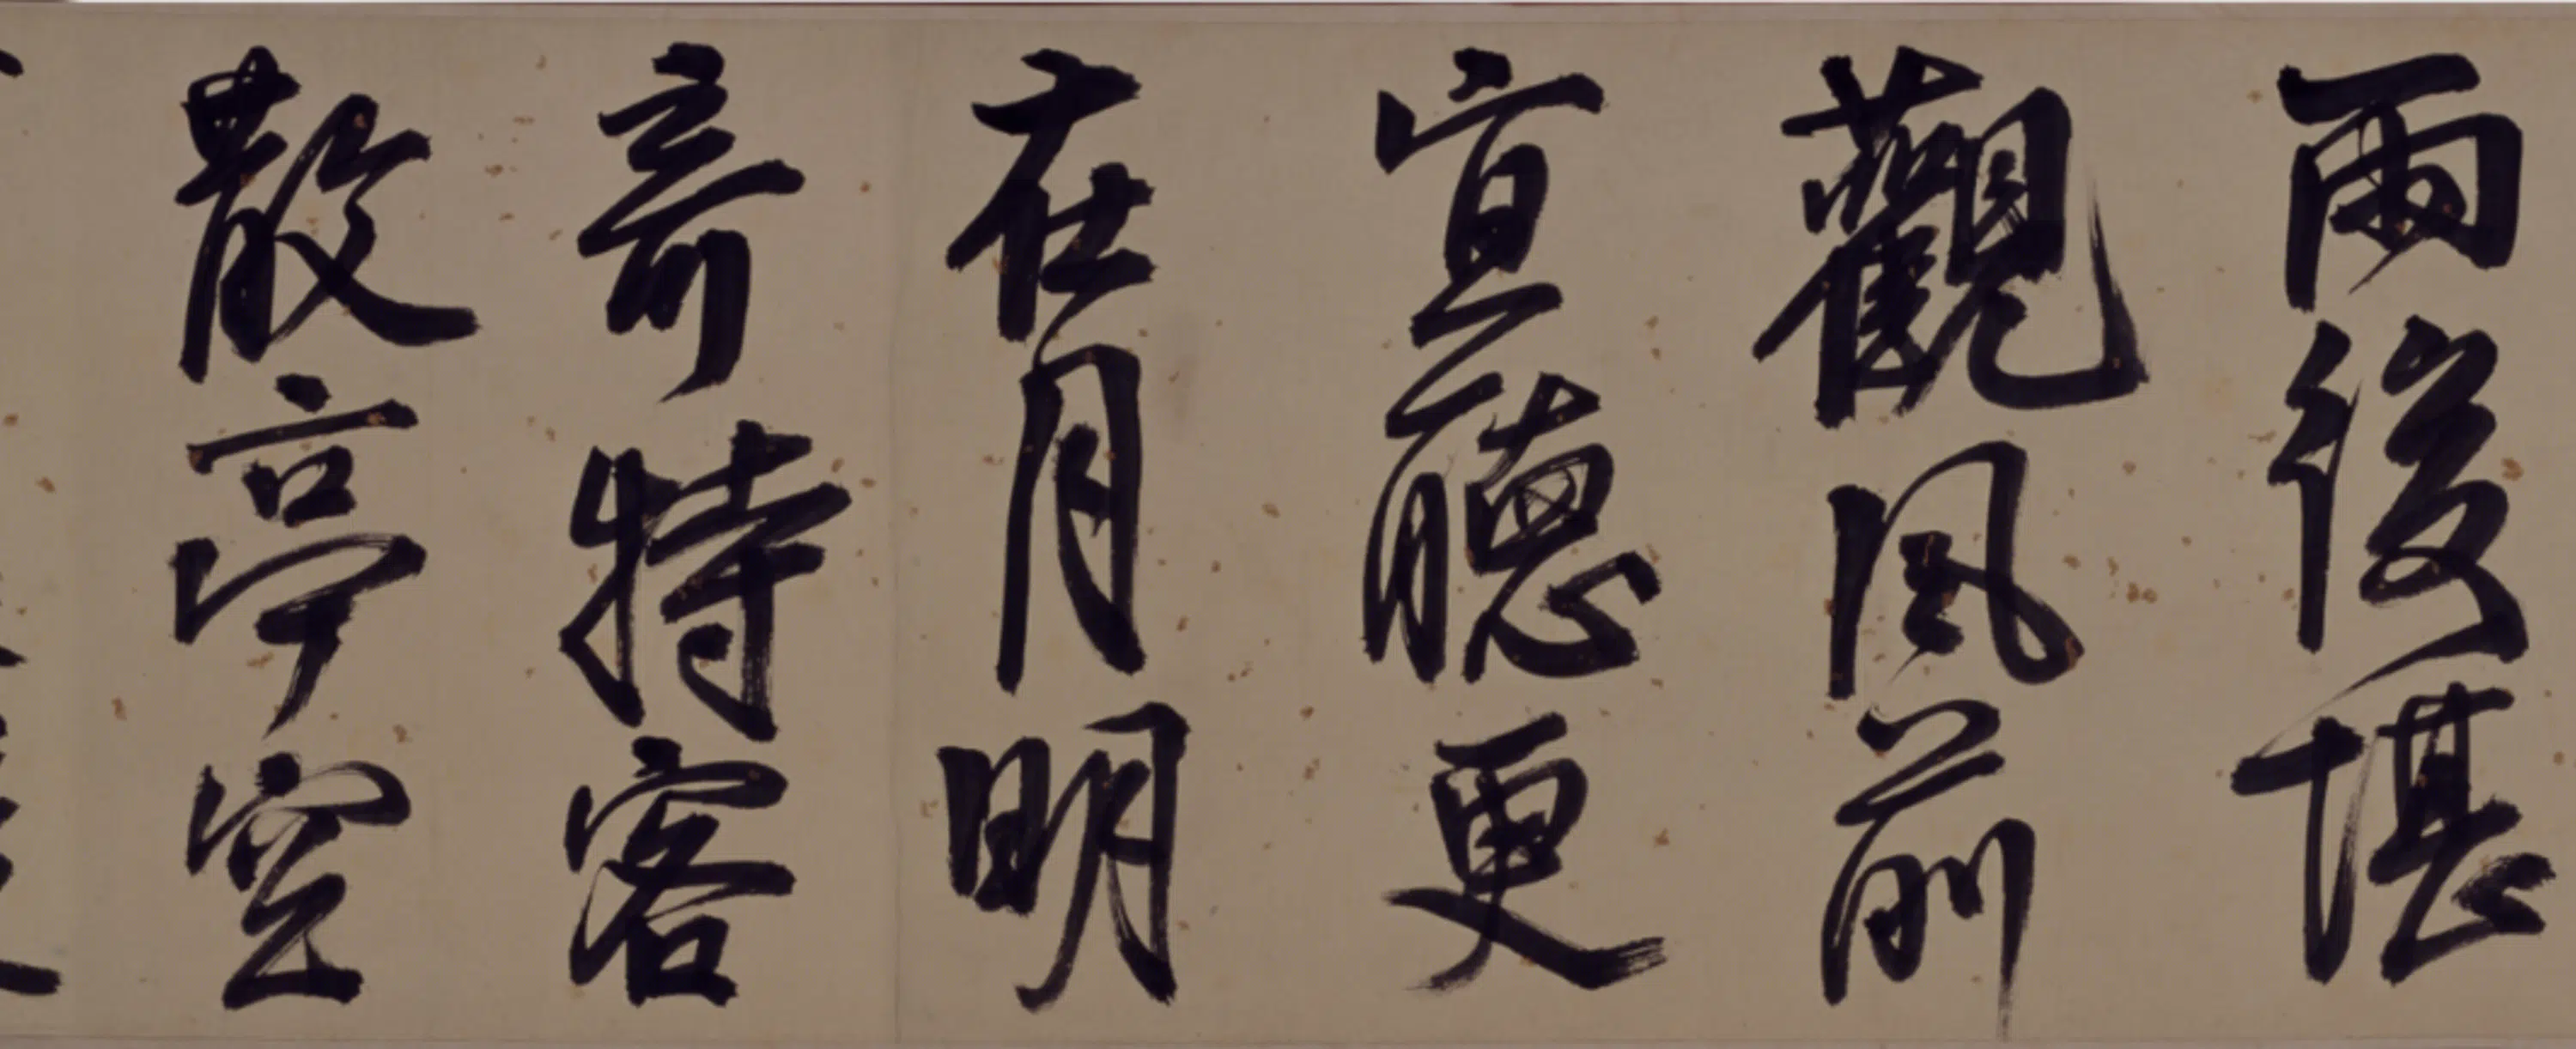 雨後堪
觀風前
宜聽更
在月明
奇特客
散亭空